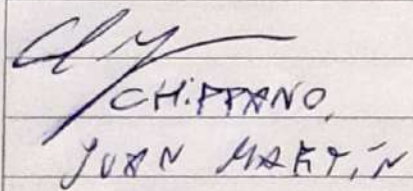 CHIPPANO,
JUAN MARTÍN